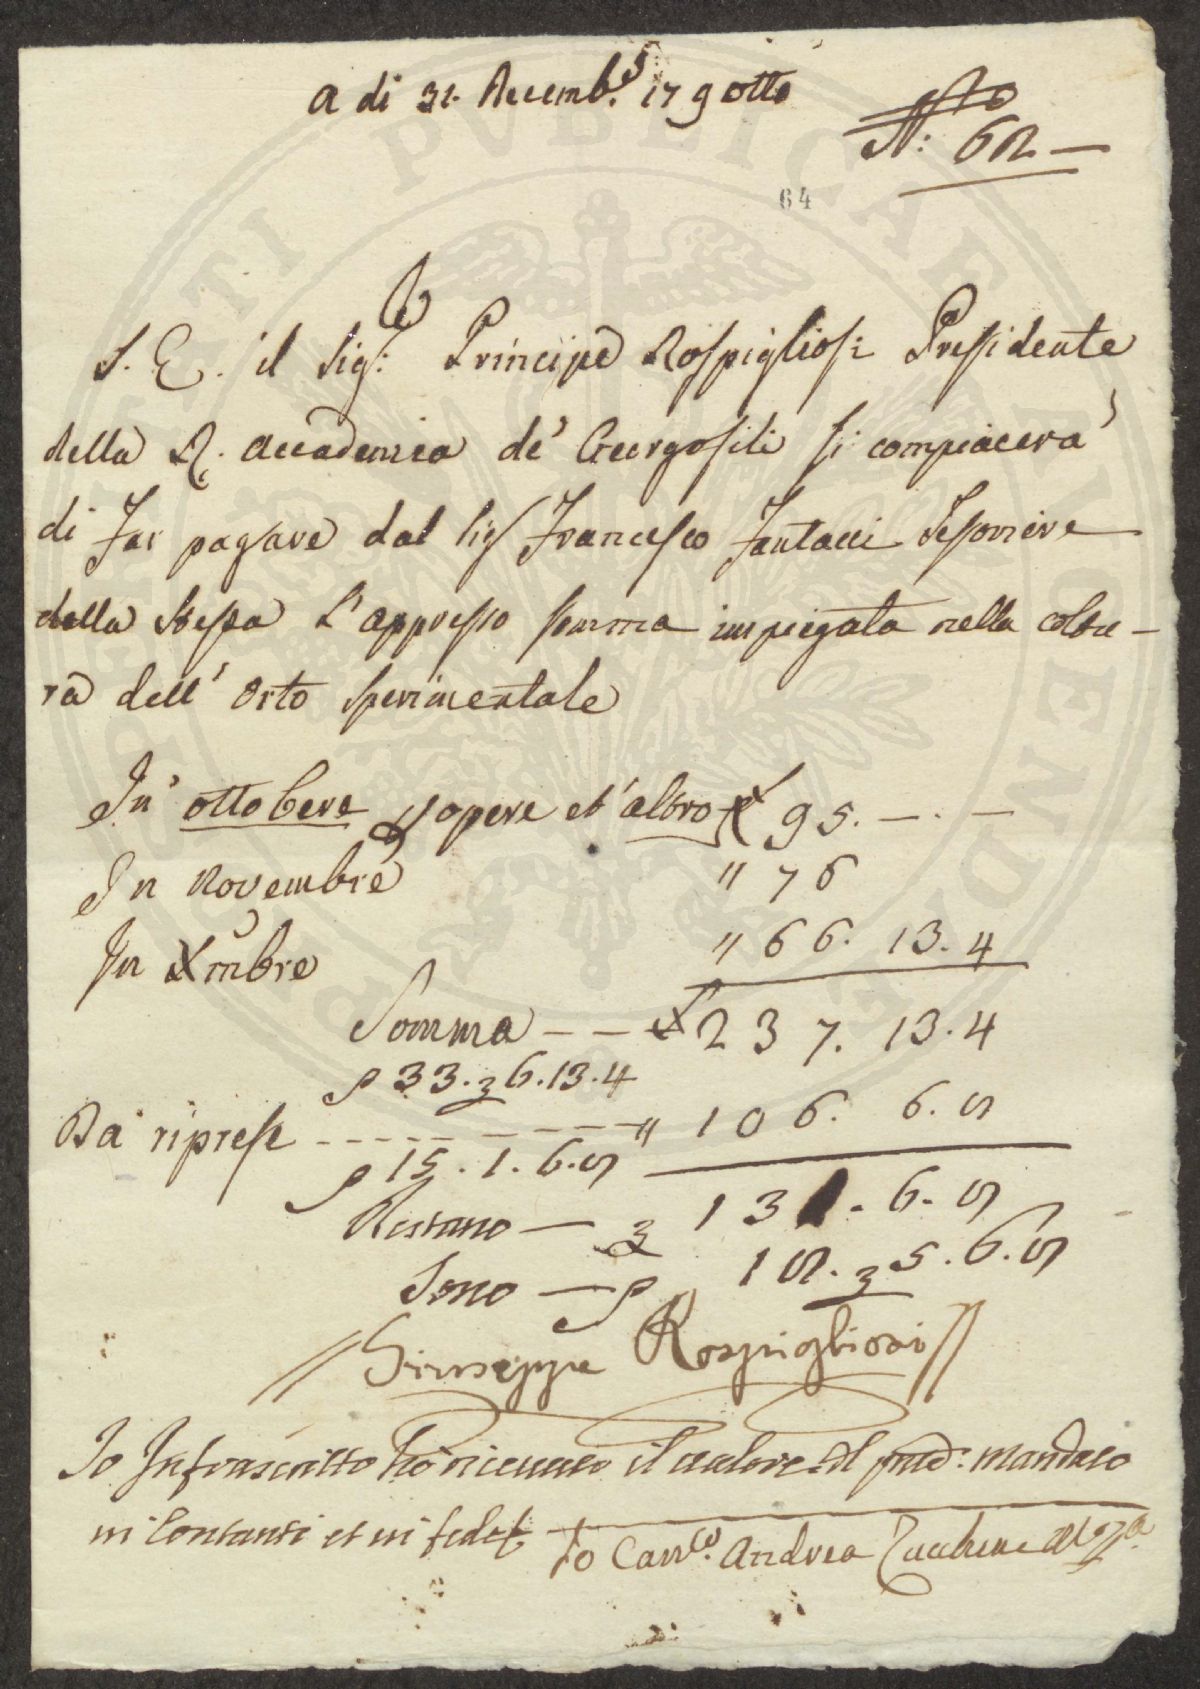 a di 31. Decemb.e 179otto
N.o 62 —
64
S. E. il Sig.e Principe Rospigliosi Presidente
della R. Accademia de' Georgofili si compiacerà
di Far pagare dal Sig Francesco Fantacci Tesoriere
della stessa L'appresso somma impiegata nella coltu-
ra dell' Orto sperimentale
In' ottobere p opere et' altro £ 95. — . —
In Novembre " 76
In Xmbre " 66. 13. 4
Somma — — £ 237. 13. 4
33. 6. 13. 4
Da' riprese — — — " 106. 6. 8
15. 1. 6. 8
Restano — 131. 6. 8
Sono — 18. 5. 6. 8
Giuseppe Rospigliosi
Io Infrascritto hò ricevuto il valore del pred: Mandato
in Contanti et in fede
Io Can.co Andrea Zucchini